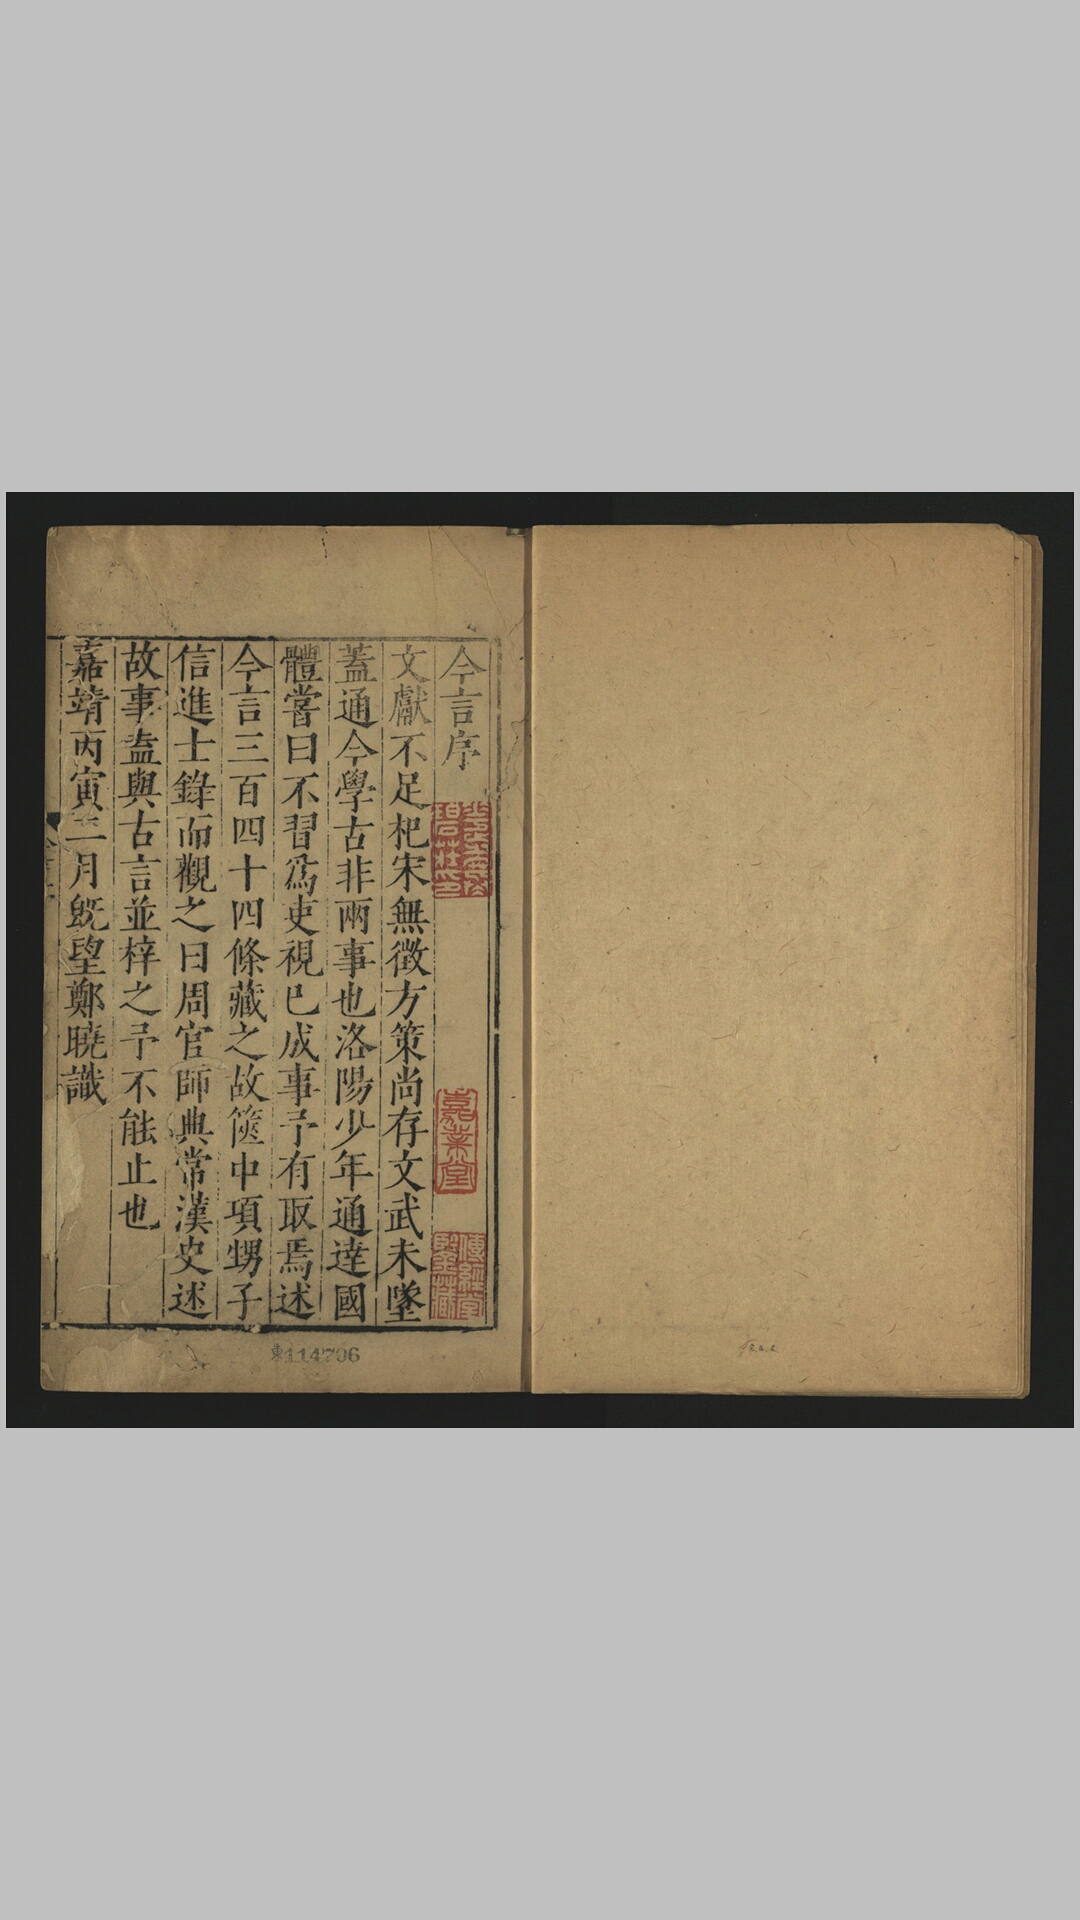 今言序
文獻不足杞宋無徵方策尚存文武未墜
蓋通今學古非兩事也洛陽少年通達國
體嘗曰不習爲吏視已成事予有取焉述
今言三百四十四條藏之故篋中項甥子
信進士錄而觀之曰周官師典常漢史述
故事盍與古言並梓之予不能止也
嘉靖丙寅三月旣望鄭曉識
嘉業堂
東114706